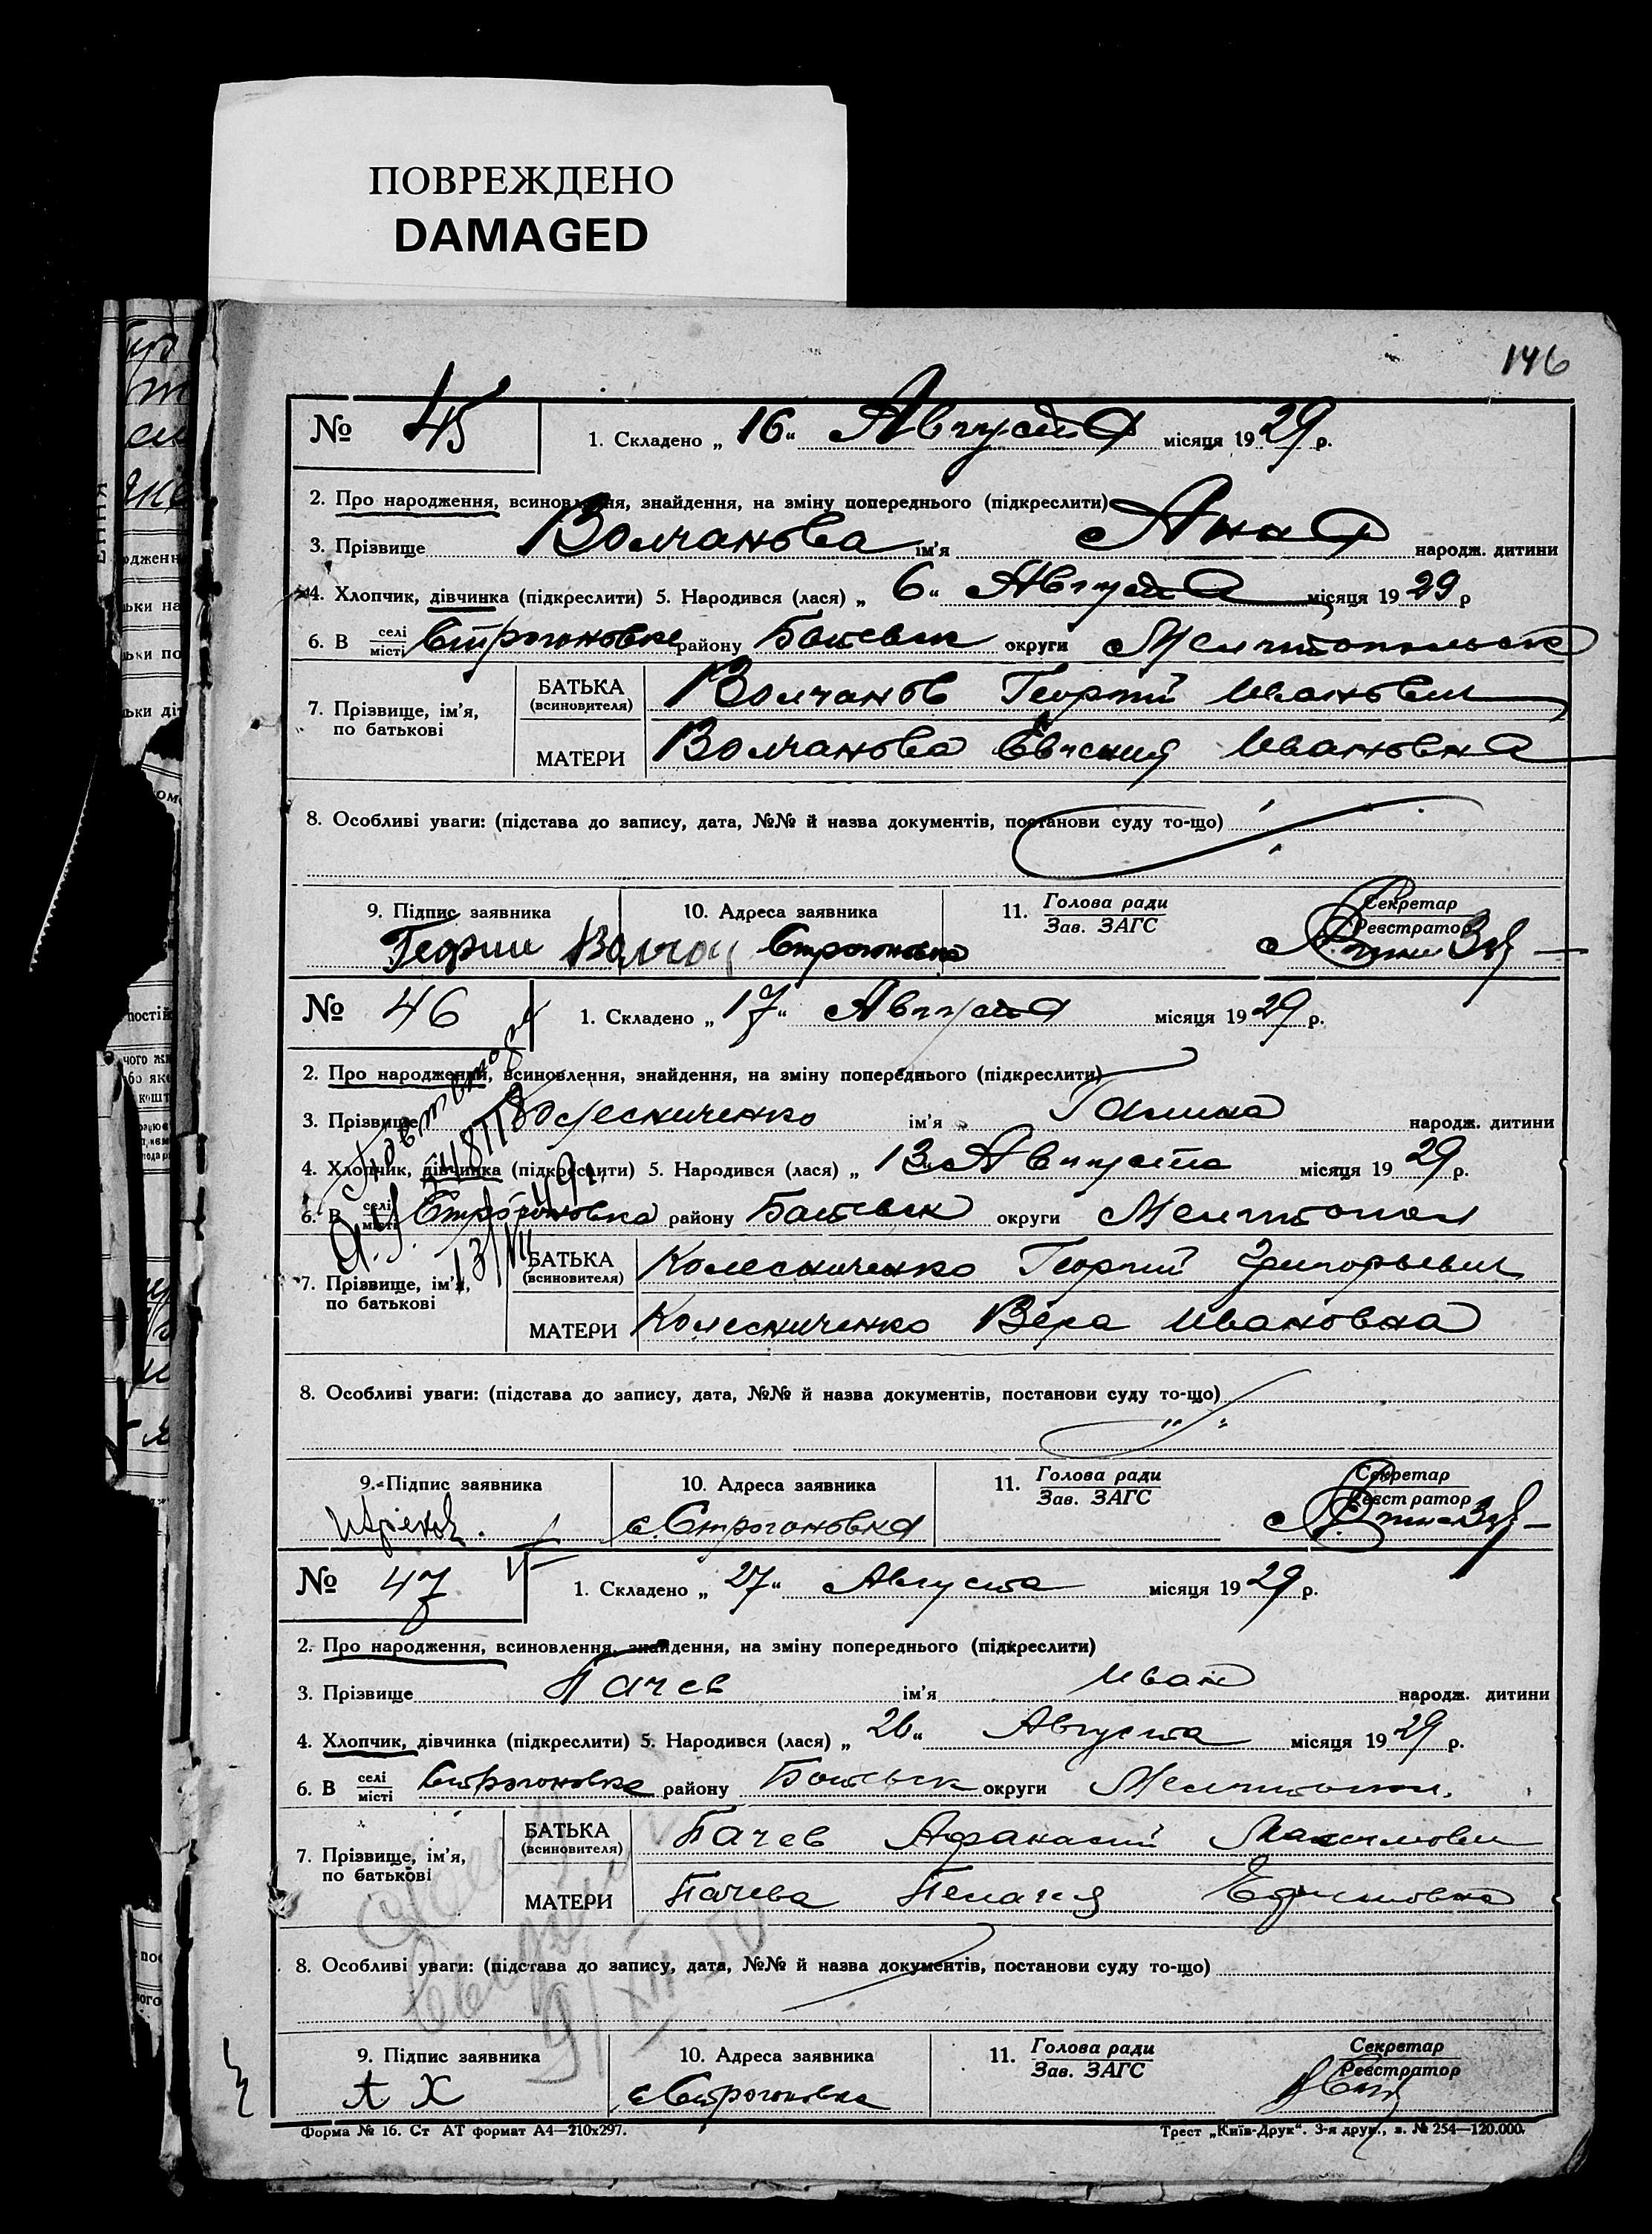 ПОВРЕЖДЕНО
DAMAGED
146
№ 45 1. Складено „ 16 “ Августа місяця 1929 р.
2. Про народження, всиновлення, знайдення, на зміну попереднього (підкреслити)
3. Прізвище Волчанова ім'я Ана народж. дитини
4. Хлопчик, дівчинка (підкреслити) 5. Народився (лася) „ 6 “ Августа місяця 1929 р
6. В селі місті Строгоновке району Ботевск округи Мелитопольск
7. Прізвище, ім'я, по батькові
БАТЬКА (всиновителя) Волчанов Георгий Иванович
МАТЕРИ Волчанова Ивановна
8. Особливі уваги: (підстава до запису, дата, №№ й назва документів, постанови суду то-що)
9. Підпис заявника 10. Адреса заявника 11. Голова ради Зав. ЗАГС Секретар Реєстратор
Строгоновка
№ 46 1. Складено „ 17 “ Августа місяця 1929 р.
2. Про народження, всиновлення, знайдення, на зміну попереднього (підкреслити)
3. Прізвище Колесниченко ім'я Галина народж. дитини
4. Хлопчик, дівчинка (підкреслити) 5. Народився (лася) „ 13 “ Августа місяця 1929 р.
6. В селі місті Строгоновка району Ботевск округи Мелитопол
7. Прізвище, ім'я, по батькові
БАТЬКА (всиновителя) Колесниченко Георгий Григорьевич
МАТЕРИ Колесниченко Вера Ивановна
8. Особливі уваги: (підстава до запису, дата, №№ й назва документів, постанови суду то-що)
9. Підпис заявника 10. Адреса заявника 11. Голова ради Зав. ЗАГС Секретар Реєстратор
с Строгоновка
№ 47 1. Складено „ 27 “ Августа місяця 1929 р.
2. Про народження, всиновлення, знайдення, на зміну попереднього (підкреслити)
3. Прізвище Пачев ім'я Иван народж. дитини
4. Хлопчик, дівчинка (підкреслити) 5. Народився (лася) „ 26 “ Августа місяця 1929 р.
6. В селі місті Строгоновка району Ботевск округи Мелитопол.
7. Прізвище, ім'я, по батькові
БАТЬКА (всиновителя) Пачев Афанасий Максимович
МАТЕРИ Пачева Пелагея Ефимовна
8. Особливі уваги: (підстава до запису, дата, №№ й назва документів, постанови суду то-що)
9/XII 50
9. Підпис заявника 10. Адреса заявника 11. Голова ради Зав. ЗАГС Секретар Реєстратор
с Строгоновка
Форма № 16. Ст АТ формат А4—210х297. Трест „Київ-Друк“. 3-я друк., з. № 254—120.000.